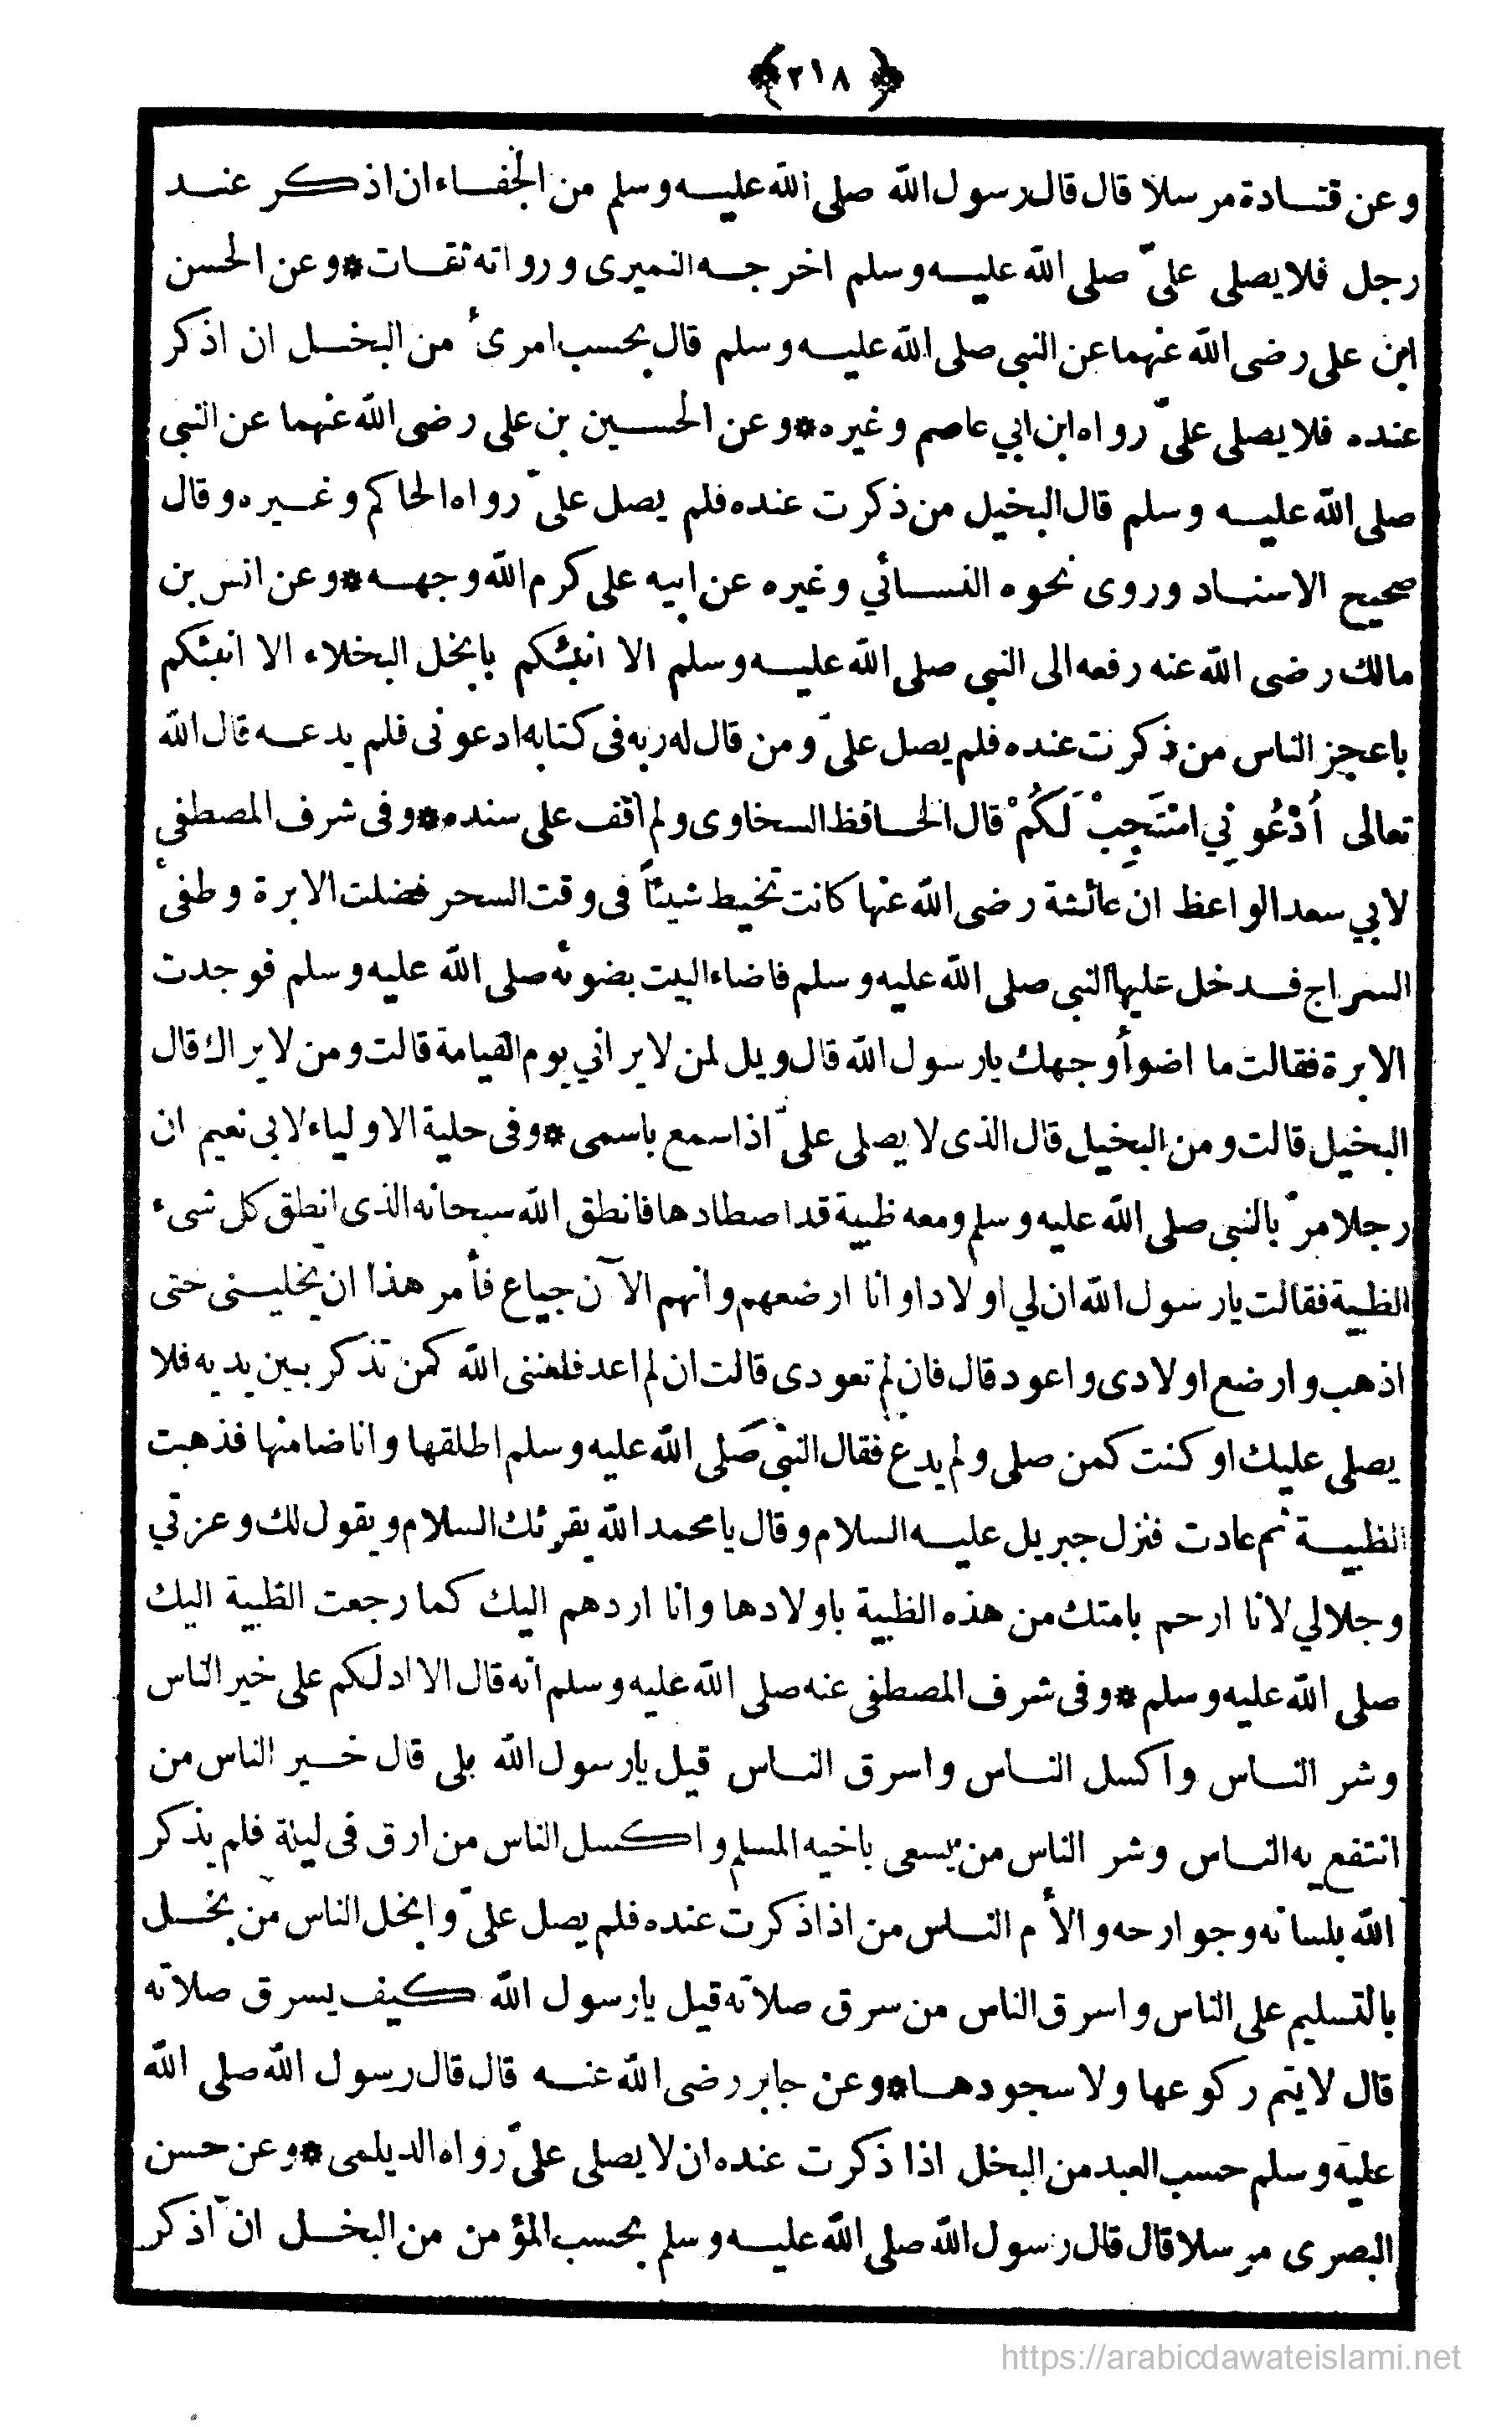 ﴿ ٢١٨ ﴾
وعن قتادة مرسلا قال قال رسول الله صلى الله عليه وسلم من الجفاء ان اذكر عند
رجل فلا يصلى علىّ صلى الله عليه وسلم اخرجه النميرى ورواته ثقات * وعن الحسن
ابن على رضى الله عنهما عن النبى صلى الله عليه وسلم قال بحسب امرئ من البخل ان اذكر
عنده فلا يصلى علىّ رواه ابن ابي عاصم وغيره * وعن الحسين بن على رضى الله عنهما عن النبى
صلى الله عليه وسلم قال البخيل من ذكرت عنده فلم يصل علىّ رواه الحاكم وغيره وقال
صحيح الاسناد وروى نحوه النسائي وغيره عن ابيه على كرم الله وجهه * وعن انس بن
مالك رضى الله عنه رفعه الى النبى صلى الله عليه وسلم الا انبئكم بابخل البخلاء الا انبئكم
باعجز الناس من ذكرت عنده فلم يصل علىّ ومن قال له ربه فى كتابه ادعونى فلم يدعه قال الله
تعالى اُدْعُوني اسْتَجِبْ لَكُمْ قال الحافظ السخاوى ولم اقف على سنده * وفى شرف المصطفى
لابي سعد الواعظ ان عائشة رضى الله عنها كانت تخيط شيئاً فى وقت السحر فضلت الابرة وطفئ
السراج فدخل عليها النبى صلى الله عليه وسلم فاضاء البيت بضوئه صلى الله عليه وسلم فوجدت
الابرة فقالت ما اضوأ وجهك يارسول الله قال ويل لمن لا يراني يوم القيامة قالت ومن لا يراك قال
البخيل قالت ومن البخيل قال الذى لا يصلى علىّ اذا سمع باسمى * وفى حلية الاولياء لابى نعيم ان
رجلا مرّ بالنبى صلى الله عليه وسلم ومعه ظبية قد اصطادها فانطق الله سبحانه الذى انطق كل شىء
الظبية فقالت يارسول الله ان لي اولادا وانا ارضعهم وانهم الآن جياع فأمر هذا ان يخلينى حتى
اذهب وارضع اولادى واعود قال فان لم تعودى قالت ان لم اعد فلعننى الله كمن تذكر بين يديه فلا
يصلى عليك او كنت كمن صلى ولم يدع فقال النبى صلى الله عليه وسلم اطلقها وانا ضامنها فذهبت
الظبية ثم عادت فنزل جبريل عليه السلام وقال يا محمد الله يقرئك السلام ويقول لك وعزتي
وجلالي لانا ارحم بامتك من هذه الظبية باولادها وانا اردهم اليك كما رجعت الظبية اليك
صلى الله عليه وسلم * وفى شرف المصطفى عنه صلى الله عليه وسلم انه قال الا ادلكم على خير الناس
وشر الناس واكسل الناس واسرق الناس قيل يارسول الله بلى قال خير الناس من
انتفع به الناس وشر الناس من يسعى باخيه المسلم واكسل الناس من ارق فى ليلة فلم يذكر
الله بلسانه وجوارحه والأم الناس من اذا ذكرت عنده فلم يصل علىّ وابخل الناس من بخل
بالتسليم على الناس واسرق الناس من سرق صلاته قيل يارسول الله كيف يسرق صلاته
قال لا يتم ركوعها ولا سجودها * وعن جابر رضى الله عنه قال قال رسول الله صلى الله
عليه وسلم حسب العبد من البخل اذا ذكرت عنده ان لا يصلى علىّ رواه الديلمى * وعن حسن
البصرى مرسلا قال قال رسول الله صلى الله عليه وسلم بحسب المؤمن من البخل ان اذكر
https://arabicdawateislami.net